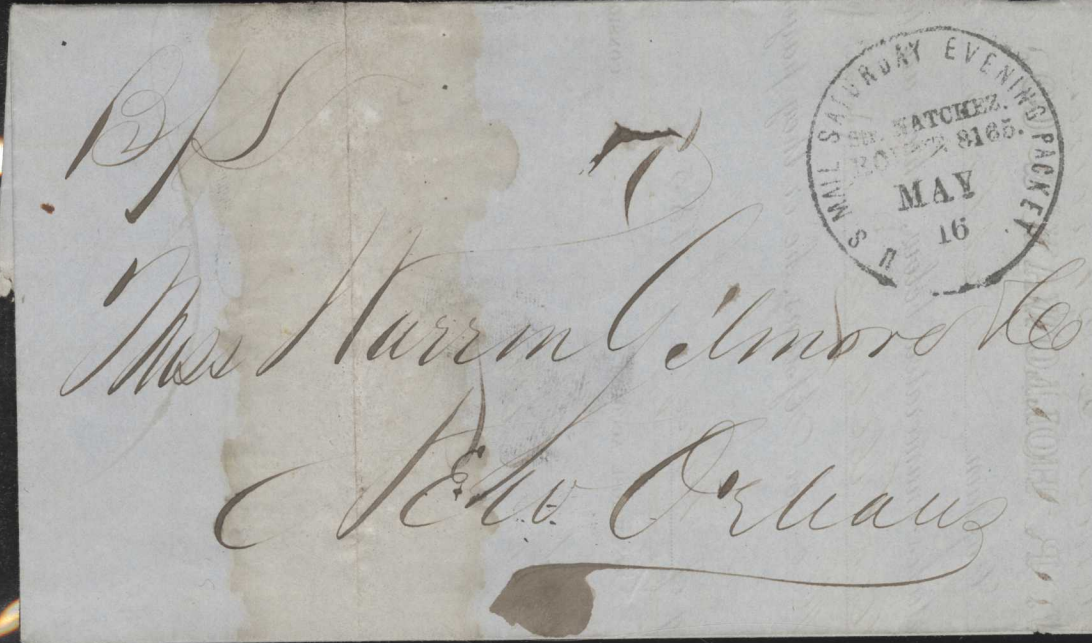 U S MAIL SATURDAY EVENING PACKET
Str. NATCHEZ.
POWER 8165.
MAY
16
7
Mess Warren Gilmore & Co
New Orleans